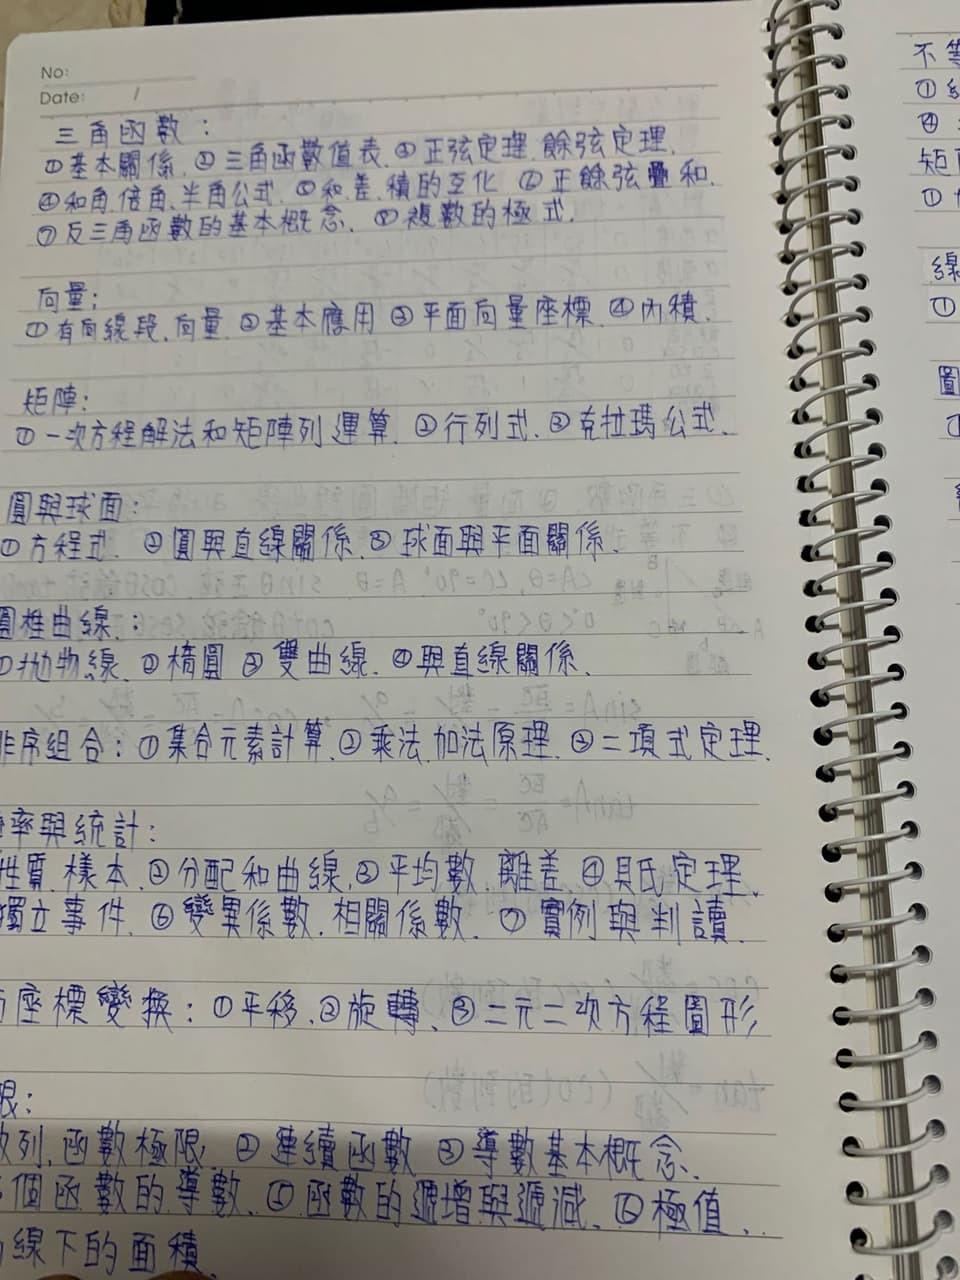 No:
Date: /
三角函數:
①基本關係.②三角函數值表.③正弦定理.餘弦定理.
④和角.倍角.半角公式.⑤和差.積的互化 ⑥正餘弦疊和.
⑦反三角函數的基本概念.⑧複數的極式.
向量:
①有向線段.向量.②基本應用③平面向量座標.④內積.
矩陣:
①一次方程解法和矩陣列運算.②行列式.③克拉瑪公式.
圓與球面:
①方程式.②圓與直線關係.③球面與平面關係.
圓椎曲線.:
①拋物線.②橢圓③雙曲線.④與直線關係.
序組合:①集合元素計算.②乘法.加法原理.③二項式定理.
率與統計:
性質.樣本.②分配和曲線.③平均數.離差.④貝氏定理.
獨立事件.⑥變異係數.相關係數.⑦實例與判讀.
座標變換:①平移.②旋轉.③二元二次方程圖形
限:
列.函數極限 ②連續函數 ③導數基本概念.
個函數的導數.⑤函數的遞增與遞減.⑥極值.
線下的面積.
不等
①
④
矩
①
線
①
圖